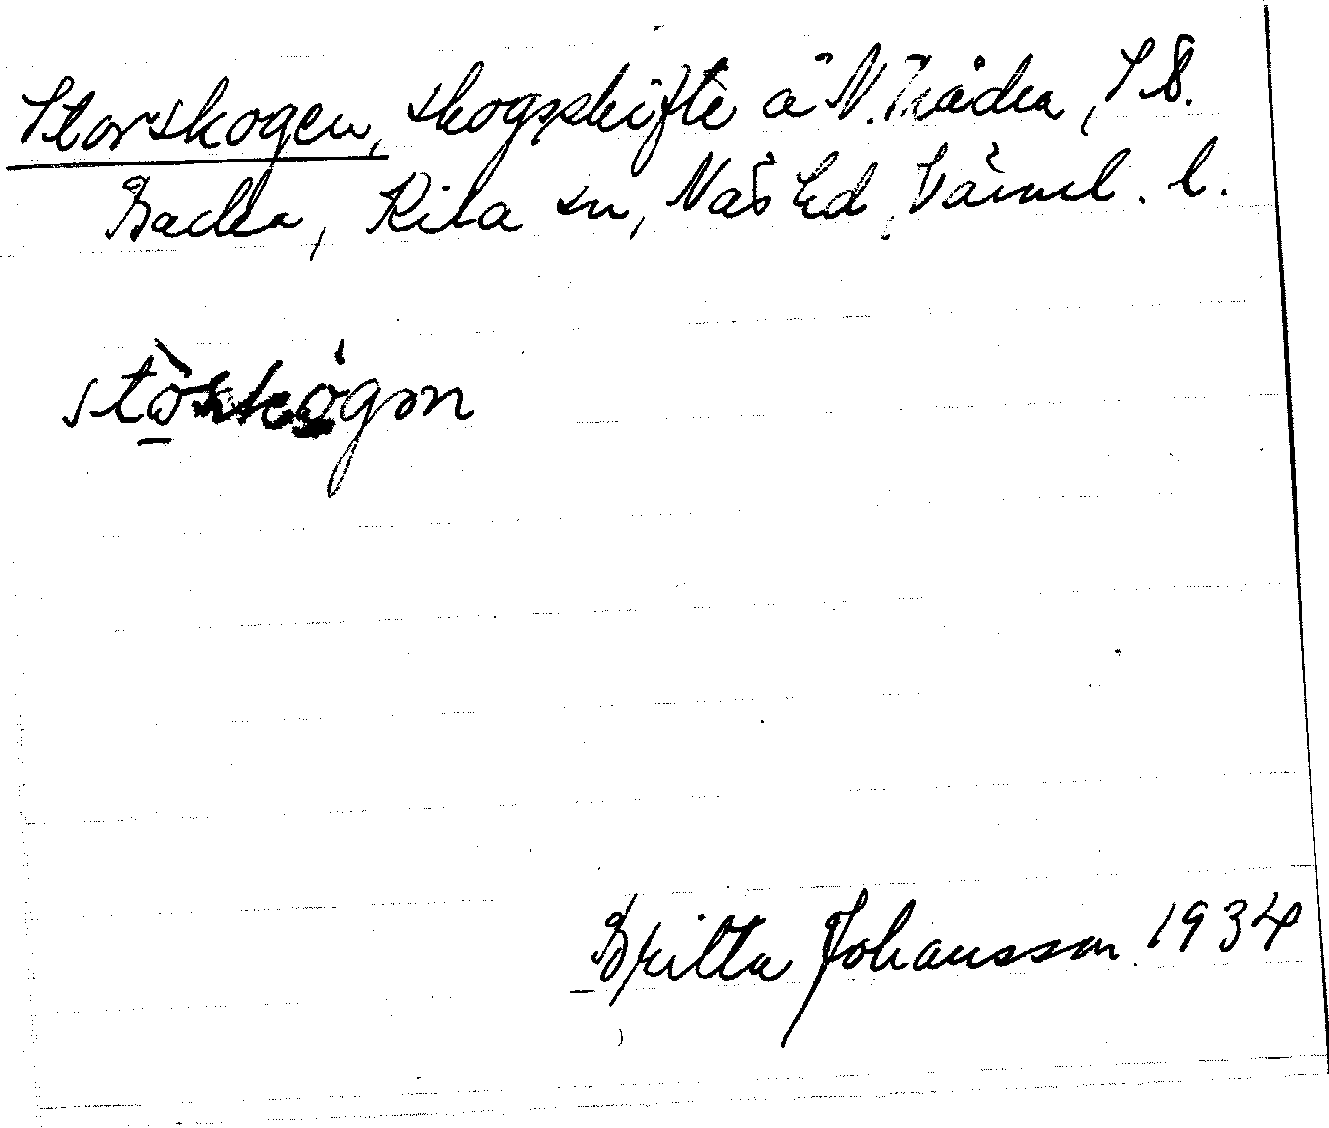 Storskogen, skogsskifte å N. Tråden, S. S.
Backa, Rila sn, Näs hd, Värml. l.
stòskógən
Britta Johansson 1934